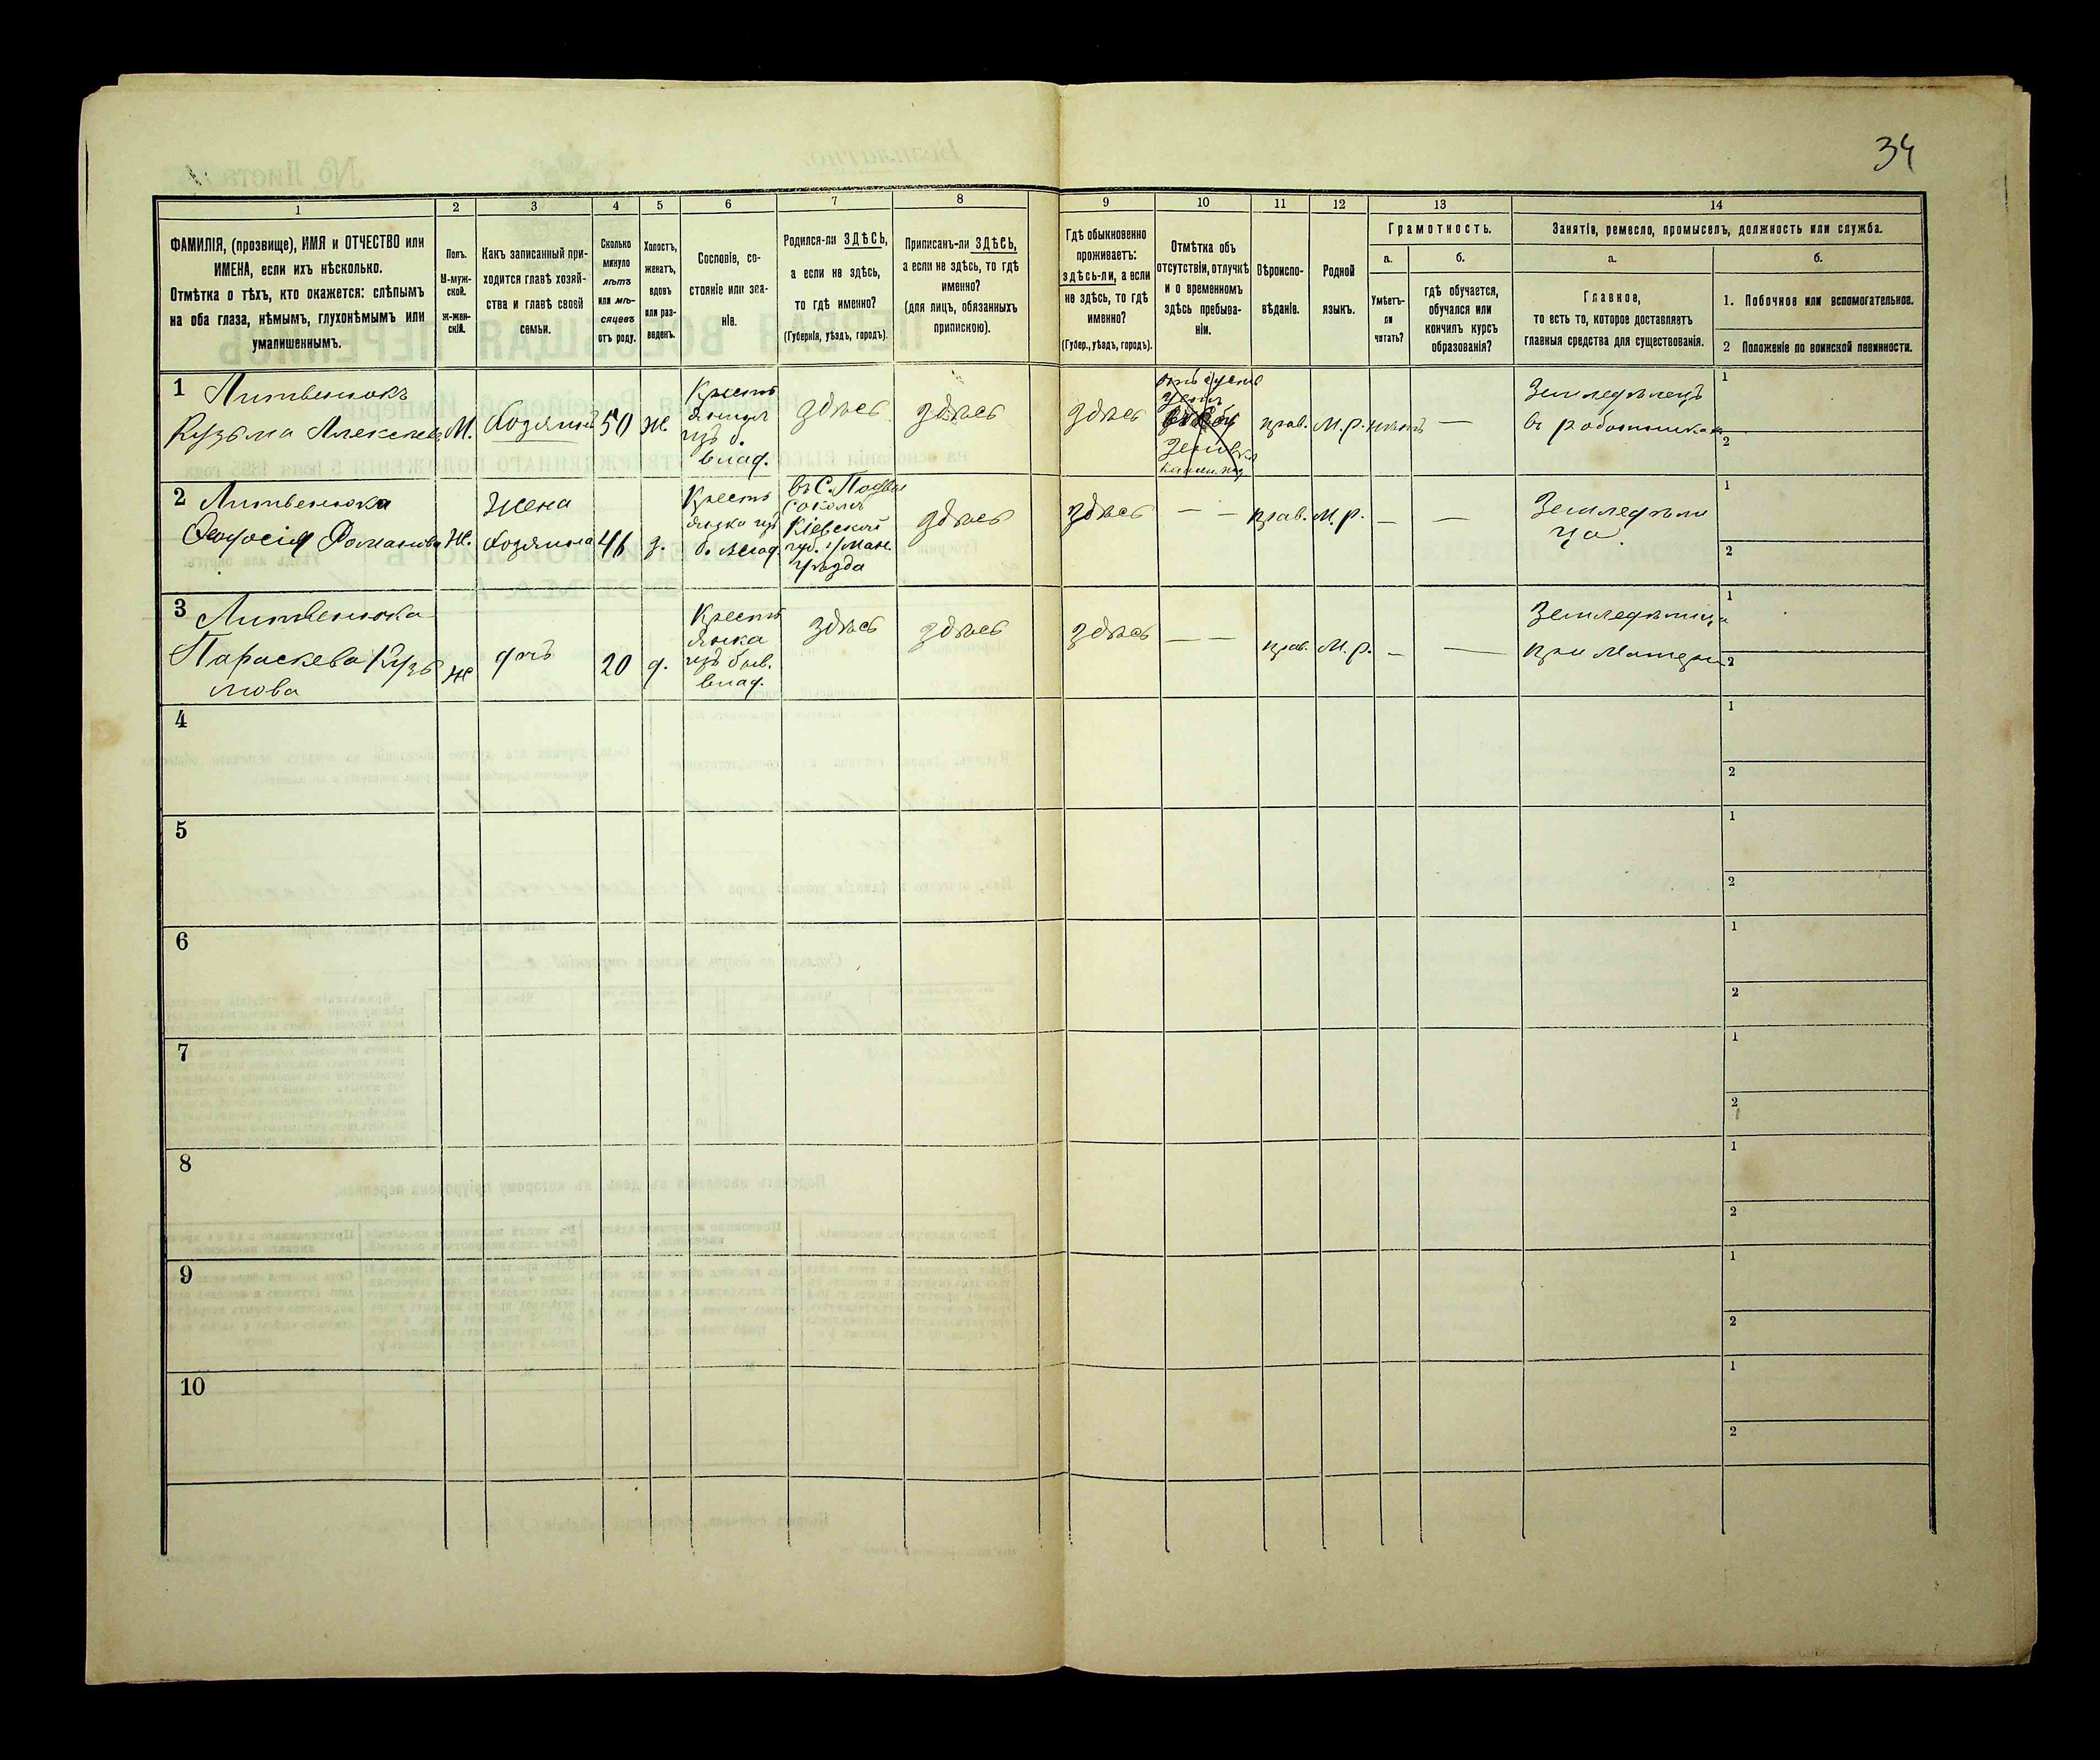 34
1 2 3 4 5 6 7 8 9 10 11 12 13 14
ФАМИЛІЯ, (прозвище), ИМЯ и ОТЧЕСТВО или
ИМЕНА, если ихъ нѣсколько.
Отмѣтка о тѣхъ, кто окажется: слѣпымъ
на оба глаза, нѣмымъ, глухонѣмымъ или
умалишеннымъ.
Полъ.
М-муж-
ской.
ж-жен-
скій.
Какъ записанный при-
ходится главѣ хозяй-
ства и главѣ своей
семьи.
Сколько
минуло
лѣтъ
или мѣ-
сяцевъ
отъ роду.
Холостъ,
женатъ,
вдовъ
или раз-
веденъ.
Сословіе, со-
стояніе или зва-
ніе.
Родился-ли ЗДѢСЬ,
а если не здѣсь,
то гдѣ именно?
(Губернія, уѣздъ, городъ).
Приписанъ-ли ЗДѢСЬ,
а если не здѣсь, то гдѣ
именно?
(для лицъ, обязанныхъ
припискою).
Гдѣ обыкновенно
проживаетъ:
здѣсь-ли, а если
не здѣсь, то гдѣ
именно?
(Губер., уѣздъ, городъ).
Отмѣтка объ
отсутствіи, отлучкѣ
и о временномъ
здѣсь пребыва-
ніи.
Вѣроиспо-
вѣданіе.
Родной
языкъ.
Грамотность.
а.
Умѣетъ-
ли
читать?
б.
гдѣ обучается,
обучался или
кончилъ курсъ
образованія?
Занятіе, ремесло, промыселъ, должность или служба.
а.
Главное,
то есть то, которое доставляетъ
главныя средства для существованія.
б.
1. Побочное или вспомогательное.
2 Положеніе по воинской повинности.
1 Литвенюкъ
Кузьма Алексѣев
М.
Хозяинъ
50
ж.
Кресть
янинъ
изъ б.
влад.
здѣсь
здѣсь
здѣсь
прав.
М.р.
нѣтъ
—
Земледѣлецъ
1
2
2 Литвенюка
Феодосія Романова
Ж.
Жена
хозяина
46
з.
Кресть
янка изъ
б. влад.
Кіевской
губ. Уман.
уѣзда
здѣсь
здѣсь
— —
прав.
М.р.
—
—
Земледѣли
ца
1
2
3 Литвенюка
Параскева Кузь
мова
Ж
дчь
20
д.
Кресть
янка
изъ быв.
влад.
здѣсь
здѣсь
здѣсь
— —
прав.
М.р.
—
—
Земледѣлица
при Матери
1
2
4
1
2
5
1
2
6
1
2
7
1
2
8
1
2
9
1
2
10
1
2